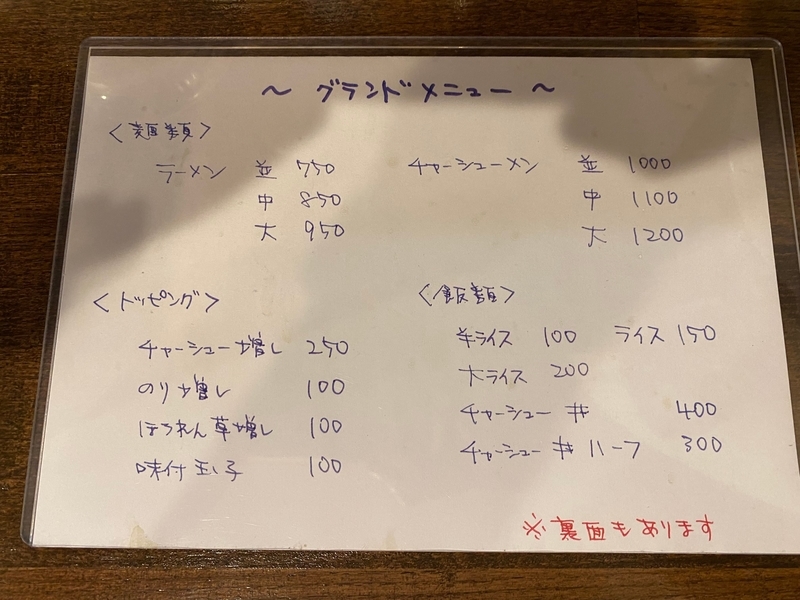 ～ グランドメニュー ～
＜麺類＞
ラーメン 並 750 チャーシューメン 並 1000
中 850 中 1100
大 950 大 1200
＜トッピング＞
チャーシュー増し 250
のり増し 100
ほうれん草増し 100
味付玉子 100
＜飯類＞
半ライス 100 ライス 150
大ライス 200
チャーシュー丼 400
チャーシュー丼ハーフ 300
※裏面もあります